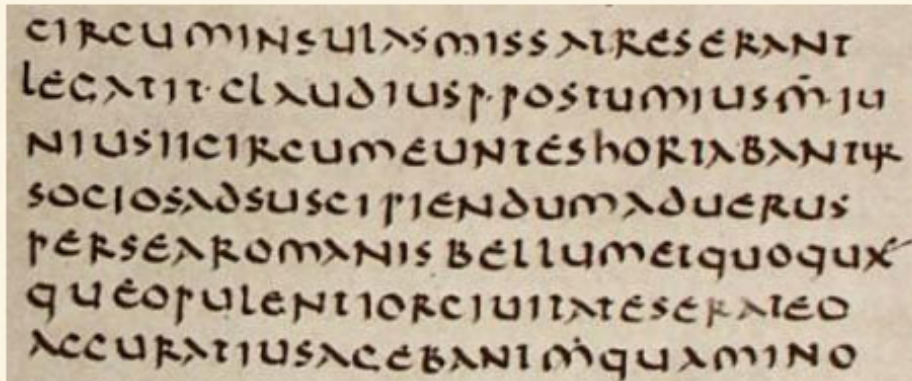 CIRCUMINSULASMISSATRESERANT
LEGATIT·CLAUDIUSP·POSTUMIUSM̄·IU
NIUSIICIRCUMEUNTESHORTABANTUR
SOCIOSADSUSCIPIENDUMADUERUS
PERSEAROMANISBELLUMETQUOQUAE
QUEOPULENTIORCIUITATESERATEO
ACCURATIUSACEBANTṀQUAMINO